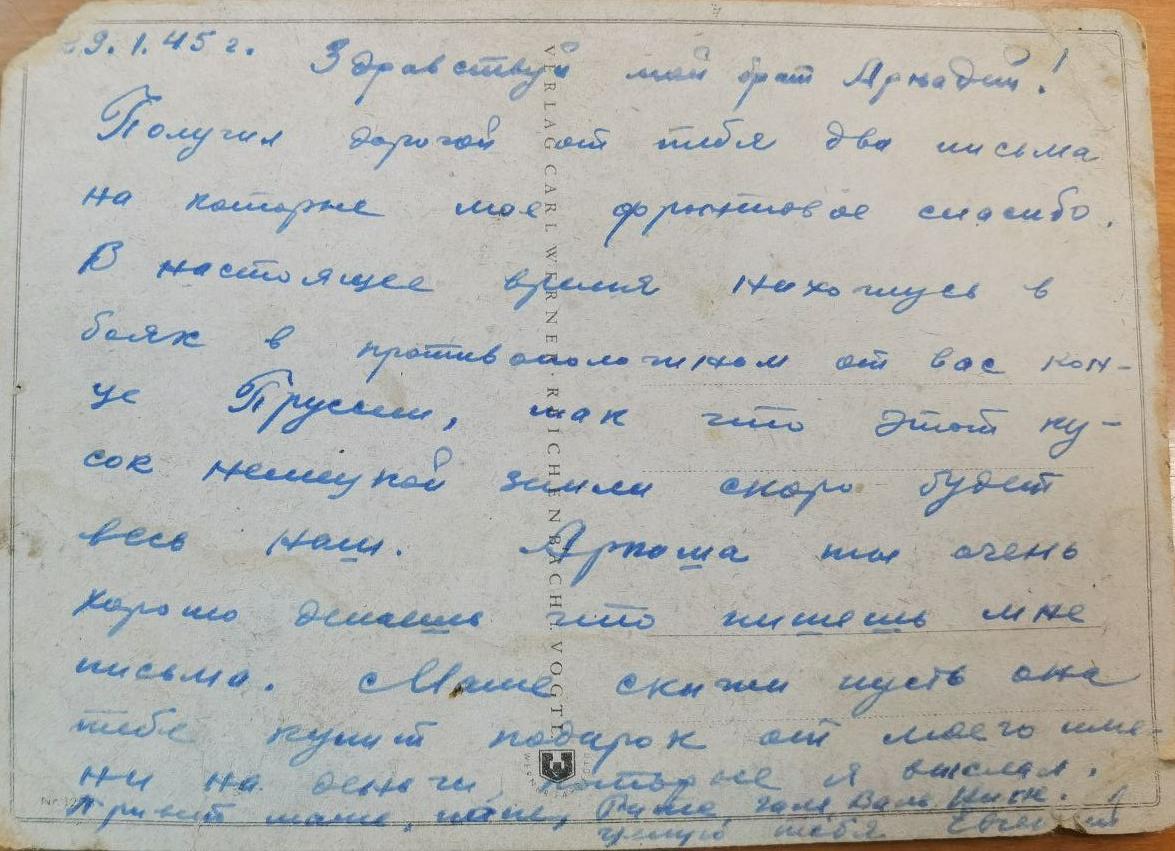 9.1.45 г.
Здравствуй мой брат Аркадий!
Получил дорогой от тебя два письма
на которые мое фронтовое спасибо.
В настоящее время нахожусь в
боях в противоположном от вас кон-
це Пруссии, так что этот ку-
сок немецкой земли скоро будет
весь наш. Аркаша ты очень
хорошо делаешь что пишешь мне
письма. Маме скажи пусть она
тебе купит подарок от моего име-
ни на деньги, которые я выслал.
Привет маме, Гале Вале
целую тебя Евгений
VERLAG CARL WERNER, REICHENBACH I. VOGTL.